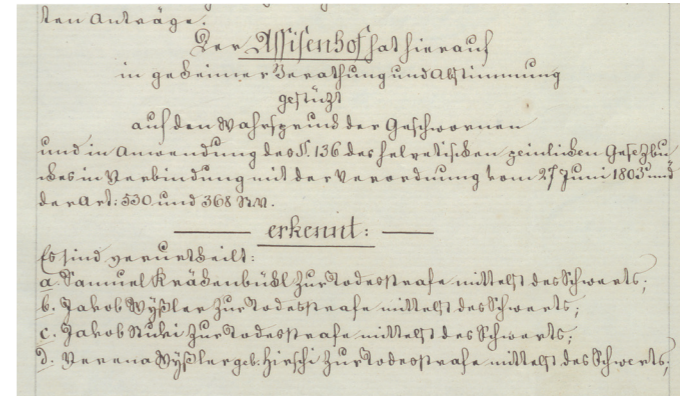 ten Anträge.
Der Assisenhof hat hierauf
in geheimer Berathung und Abstimmung
gestüzt
auf den Wahrspruch der Geschwornen
und in Anwendung des §. 136 des helvetischen peinlichen Gesezbu-
ches in Verbindung mit der Verordnung vom 27 Juni 1803 und
der Art: 530 und 368 St.V.
erkennt:
Es sind verurtheilt:
a. Samuel Krähenbühl zur Todesstrafe mittelst des Schwerts;
b. Jakob Wyßler zur Todesstrafe mittelst des Schwerts;
c. Jakob Stuki zur Todesstrafe mittelst des Schwerts;
d. Verena Wyßler geb. Hirschi zur Todesstrafe mittelst des Schwerts;